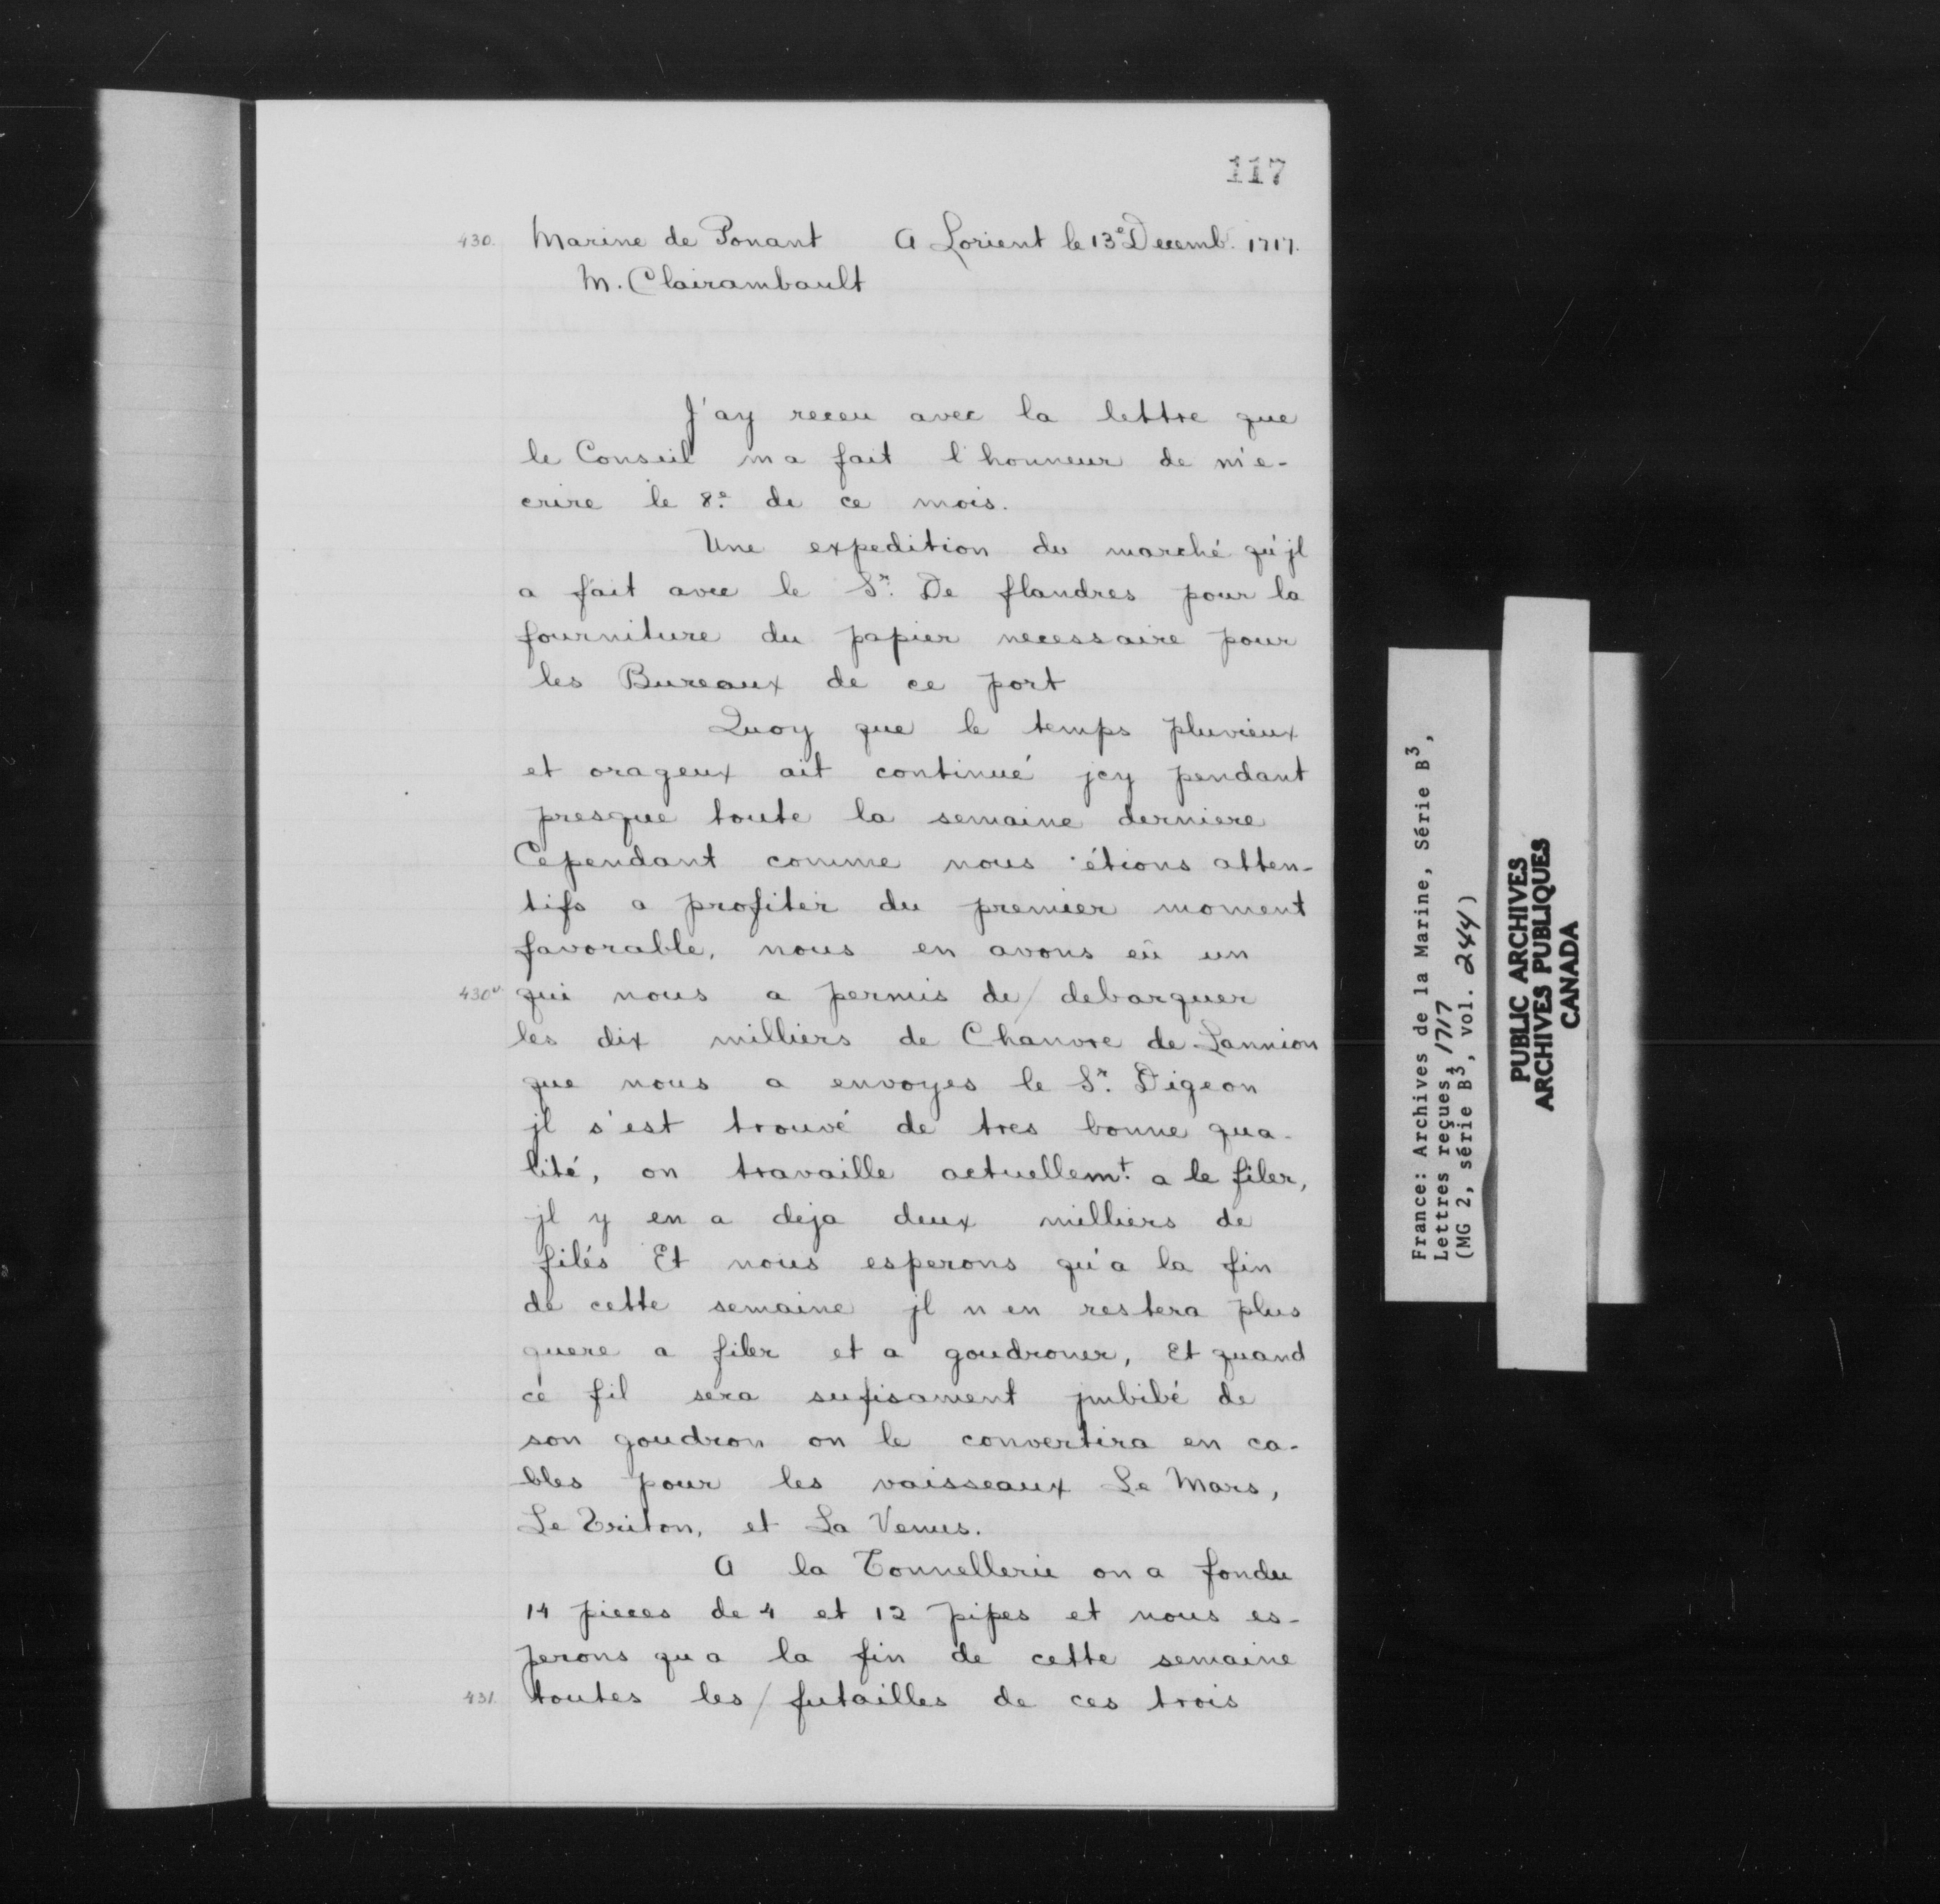 117
430. Marine de Ponant A Lorient le 13e Decemb. 1717.
M. Clairambault
J'ay receu avec la lettre que
le Conseil m a fait l'honneur de m'e-
crire le 8e. de ce mois.
Une expedition du marché qu'jl
a fait avec le Sr. De flandres pour la
fourniture du papier necessaire pour
les Bureaux de ce port
Quoy que le temps pluvieux
et orageux ait continué jcy pendant
presque toute la semaine derniere
Cependant comme nous étions atten-
tifs a profiter du premier moment
favorable, nous en avons eû un
430v qui nous a permis de / debarquer
les dix milliers de Chanvre de Lannion
que nous a envoyes le Sr. Digeon
jl s'est trouvé de tres bonne qua-
lité, on travaille actuellemt. a le filer,
jl y en a deja deux milliers de
filés Et nous esperons qu'a la fin
de cette semaine jl n en restera plus
guere a filer et a goudroner, Et quand
ce fil sera sufisament jmbibé de
son goudron on le convertira en ca-
bles pour les vaisseaux Le Mars,
Le Triton, et La Venus.
A la Tonnellerie on a fondu
14 pieces de 4 et 12 pipes et nous es-
perons qu a la fin de cette semaine
431. toutes les / futailles de ces trois
France: Archives de la Marine, Série B3,
Lettres reçues, 1717
(MG 2, série B3, vol. 244)
PUBLIC ARCHIVES
ARCHIVES PUBLIQUES
CANADA